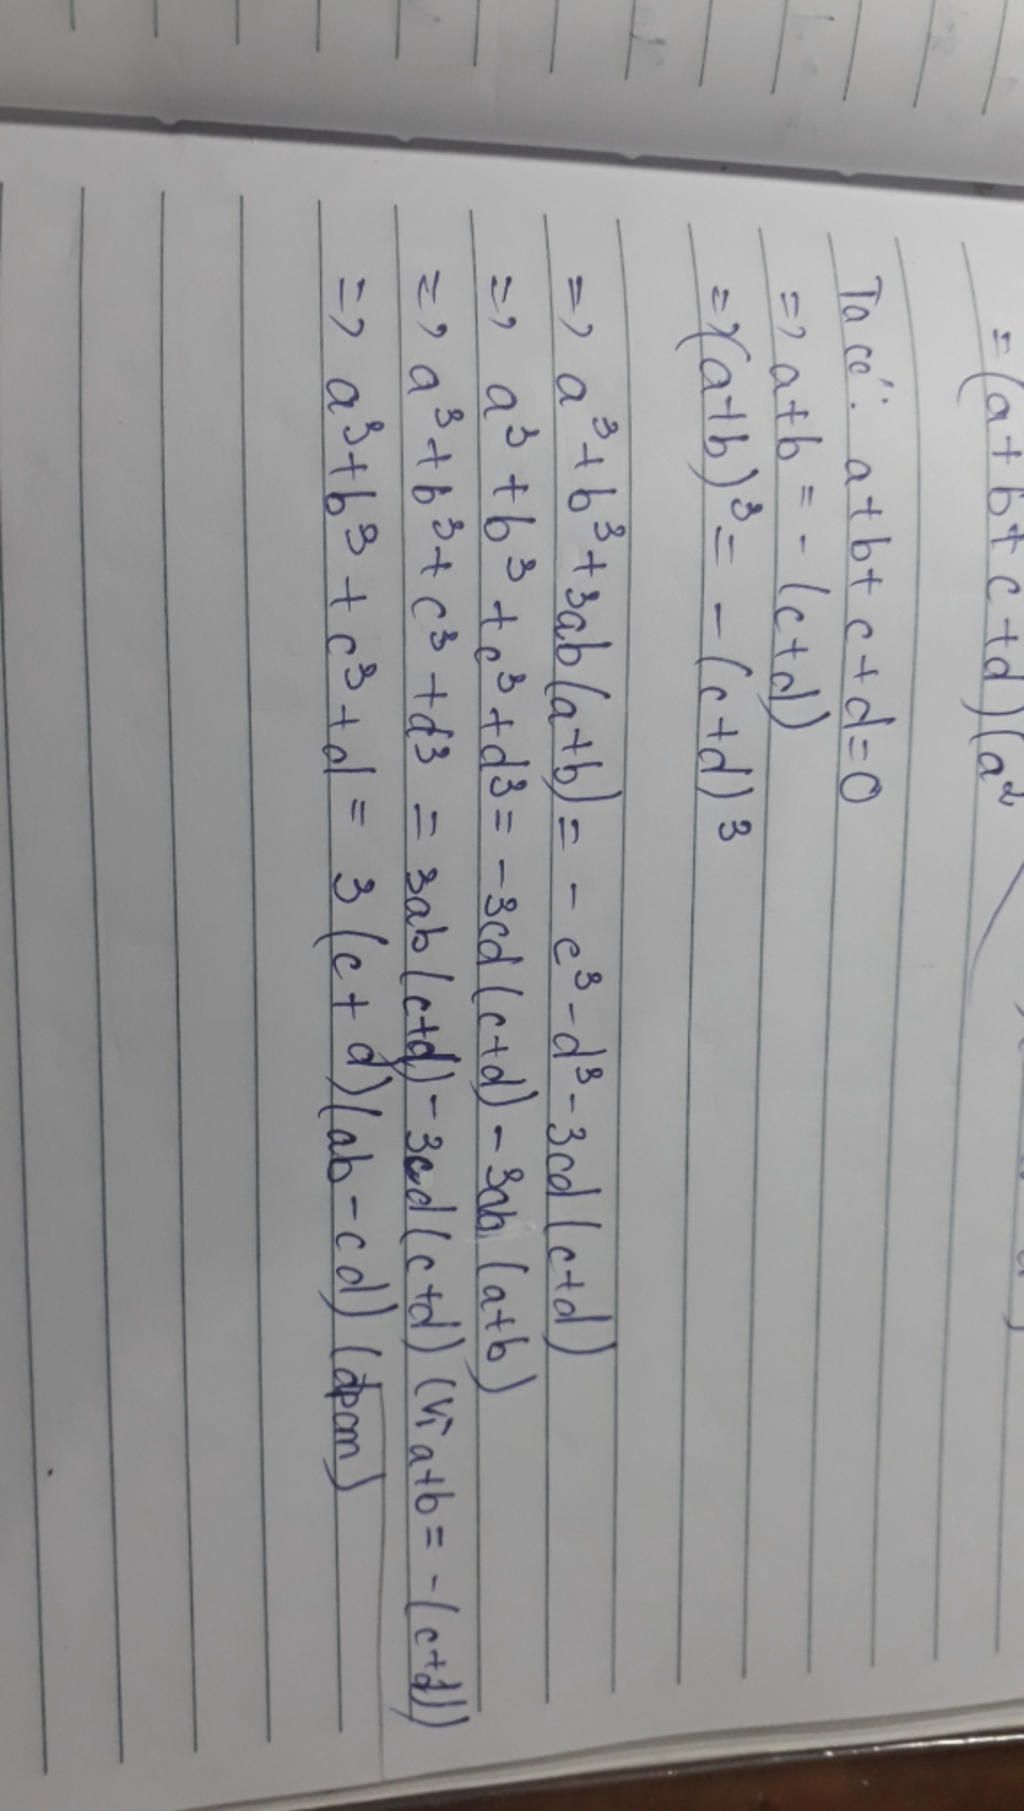 = (a+b+c+d)(a²
Ta có: a+b+c+d=0
=> a+b = -(c+d)
=> (a+b)³ = -(c+d)³
=> a³+b³+3ab(a+b) = -c³-d³-3cd(c+d)
=> a³+b³+c³+d³ = -3cd(c+d)-3ab(a+b)
=> a³+b³+c³+d³ = 3ab(c+d)-3cd(c+d) (Vì a+b = -(c+d))
=> a³+b³+c³+d = 3(c+d)(ab-cd) (đpcm)